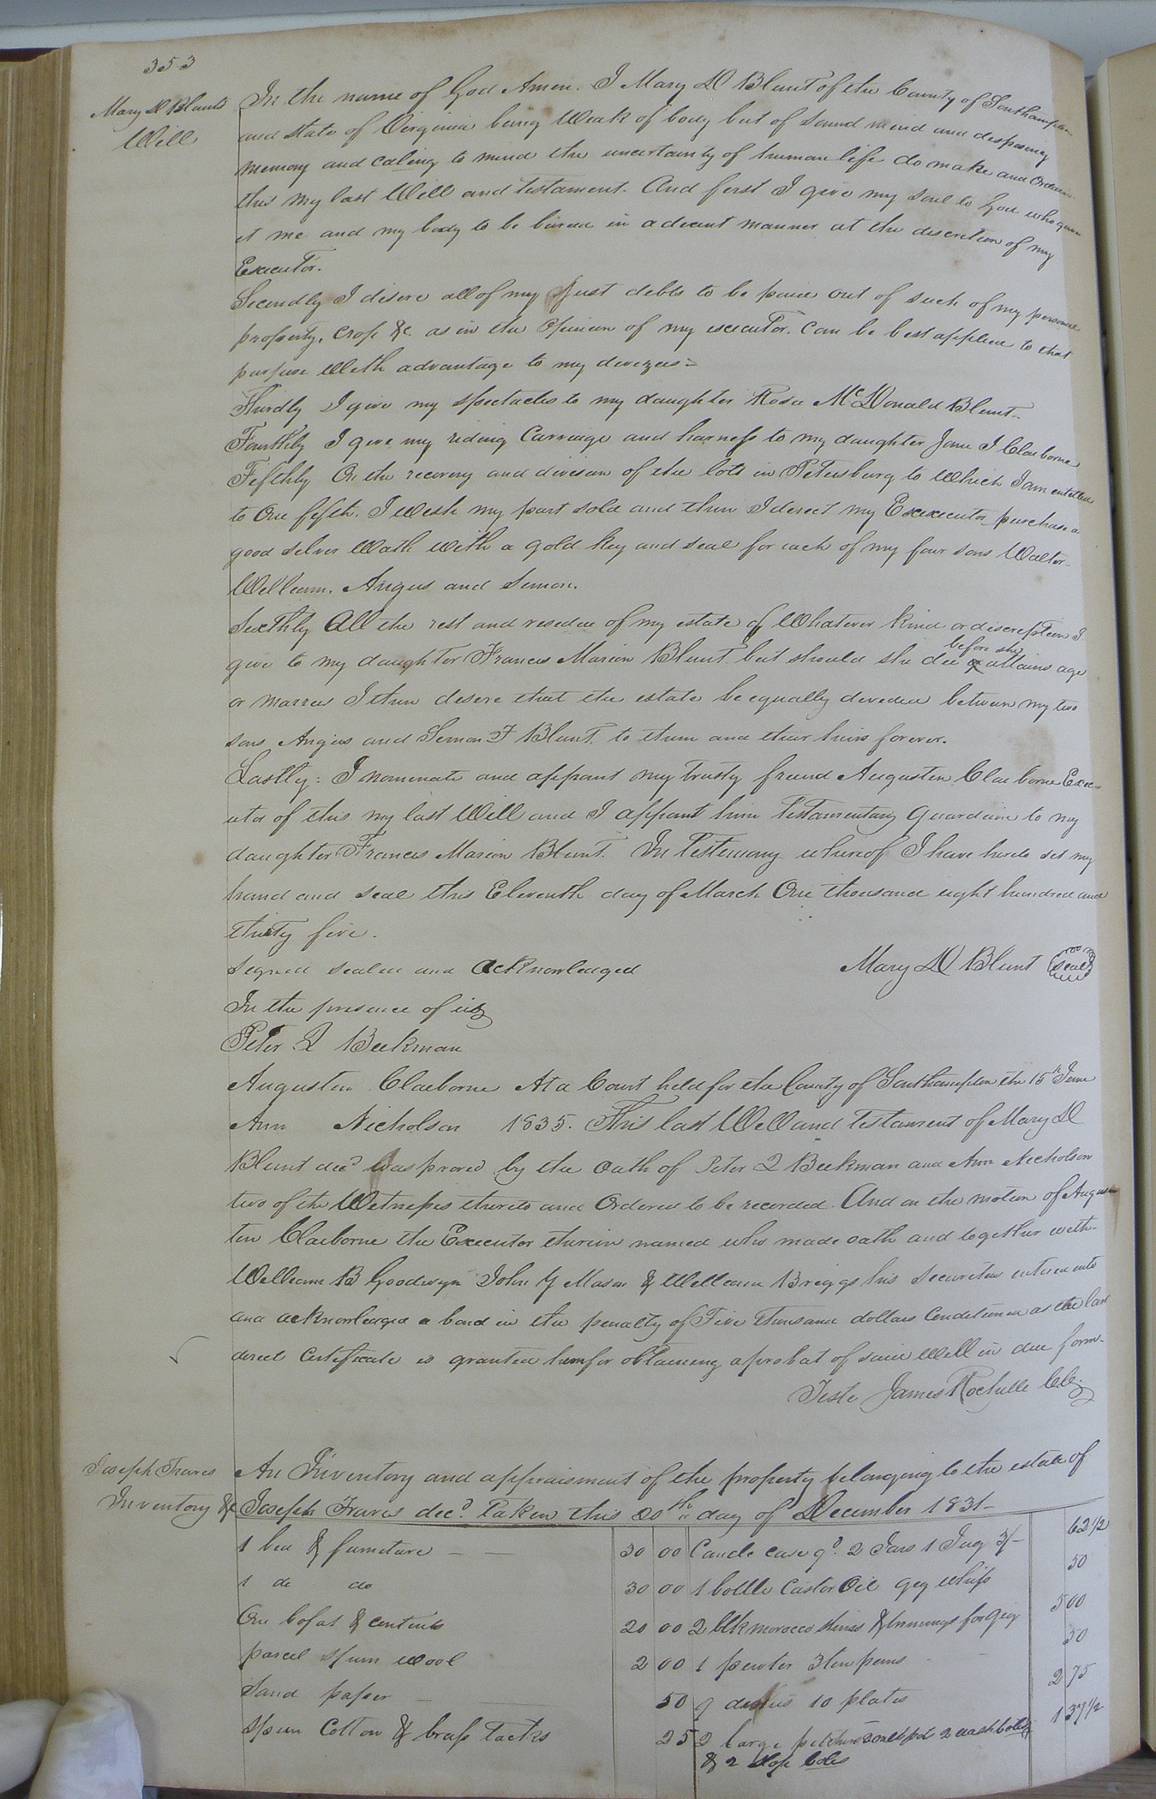 353
Mary D Blunts
Will
In the name of God Amen. I Mary D Blunt of the County of Southampton
and State of Virginia being Weak of body but of Sound mind and disposing
memory and caling to mind the uncertainty of human life do make and Ordain
this my last Will and testament. And first I give my Soul to God who gave
it me and my body to be buried in a decent manner at the discretion of my
Executor.
Secondly I disere all of my Just debts to be paid out of such of my personal
property, crop &c as in the Opinion of my executor. Can be best applied to that
purpose With advantage to my devizees =
Thirdly I give my Spectacles to my daughter Rosa McDonald Blunt -
Fourthly I give my riding Carriage and harness to my daughter Jane I Claiborne
Fifthly On the recovery and division of the lots in Petersburg to Which I am entitled
to One fifth. I wish my part sold and then I derect my Exexecutor purchase a
good silver Wath with a gold key and seal for each of my four sons Walter
William. Angus and Simon.
Sixthly All the rest and residue of my estate of Whatever Kind or discreption I
give to my daughter Frances Marion Blunt but should she die before she attains age
or marres I then desere that the estate be equally devided between my two
sons Angus and Simon F Blunt. to them and their heirs forever.
Lastly: I nominate and appoint my trusty friend Augusten Claiborne Exec-
utor of this my last Will and I appoint him Testamentary Guardian to my
daughter Frances Marion Blunt. In Testimony whereof I have hireto set my
hand and seal this Eleventh day of March One thousand eight hundred and
thirty five.
Signed sealed and Acknowledged Mary D Blunt seal
In the presence of us
Peter Q Beekman
Augusten Claiborne At a Court held for the County of Southampton the 15th June
Ann Nicholson 1835. This last Will and Testament of Mary D
Blunt decd was proved by the oath of Peter Q Beekman and Ann Nicholson
two of the Witnesses thereto and Ordered to be recorded. And on the motion of Augus
tin Claiborne the Executor therein named who made oath and together with
William B Goodwyn John Y Mason & William Briggs his Securities entered into
and acknowledged a bond in the penalty of Five Thousand dollars Conditioned as the law
direct Certificate is granted him for obtaining a probat of said Will in due form.
Teste James Rochelle Clk.
Joseph Travis
Inventory &c
An Inventory and appraisment of the property belonging to the estate of
Joseph Travis decd. Taken this 20th day of December 1831 -
1 bed & furneture 30 00 Candle case qd. 2 Jars 1 Jug 3/- 62 1/2
1 do do 30 00 1 bottle Castor Oil gig whip 50
One bofat & contents 20 00 2 blk morocco skins & trimmings for gig 5 00
parcel spun wool 2 00 1 pewter 3 tin pans 50
Sand paper 50 9 dishes 10 plates 2 75
Spun Cotton & brass tacks 25 2 large pitchers 2 wash bowls 1 37 1/2
& 2 slop bols